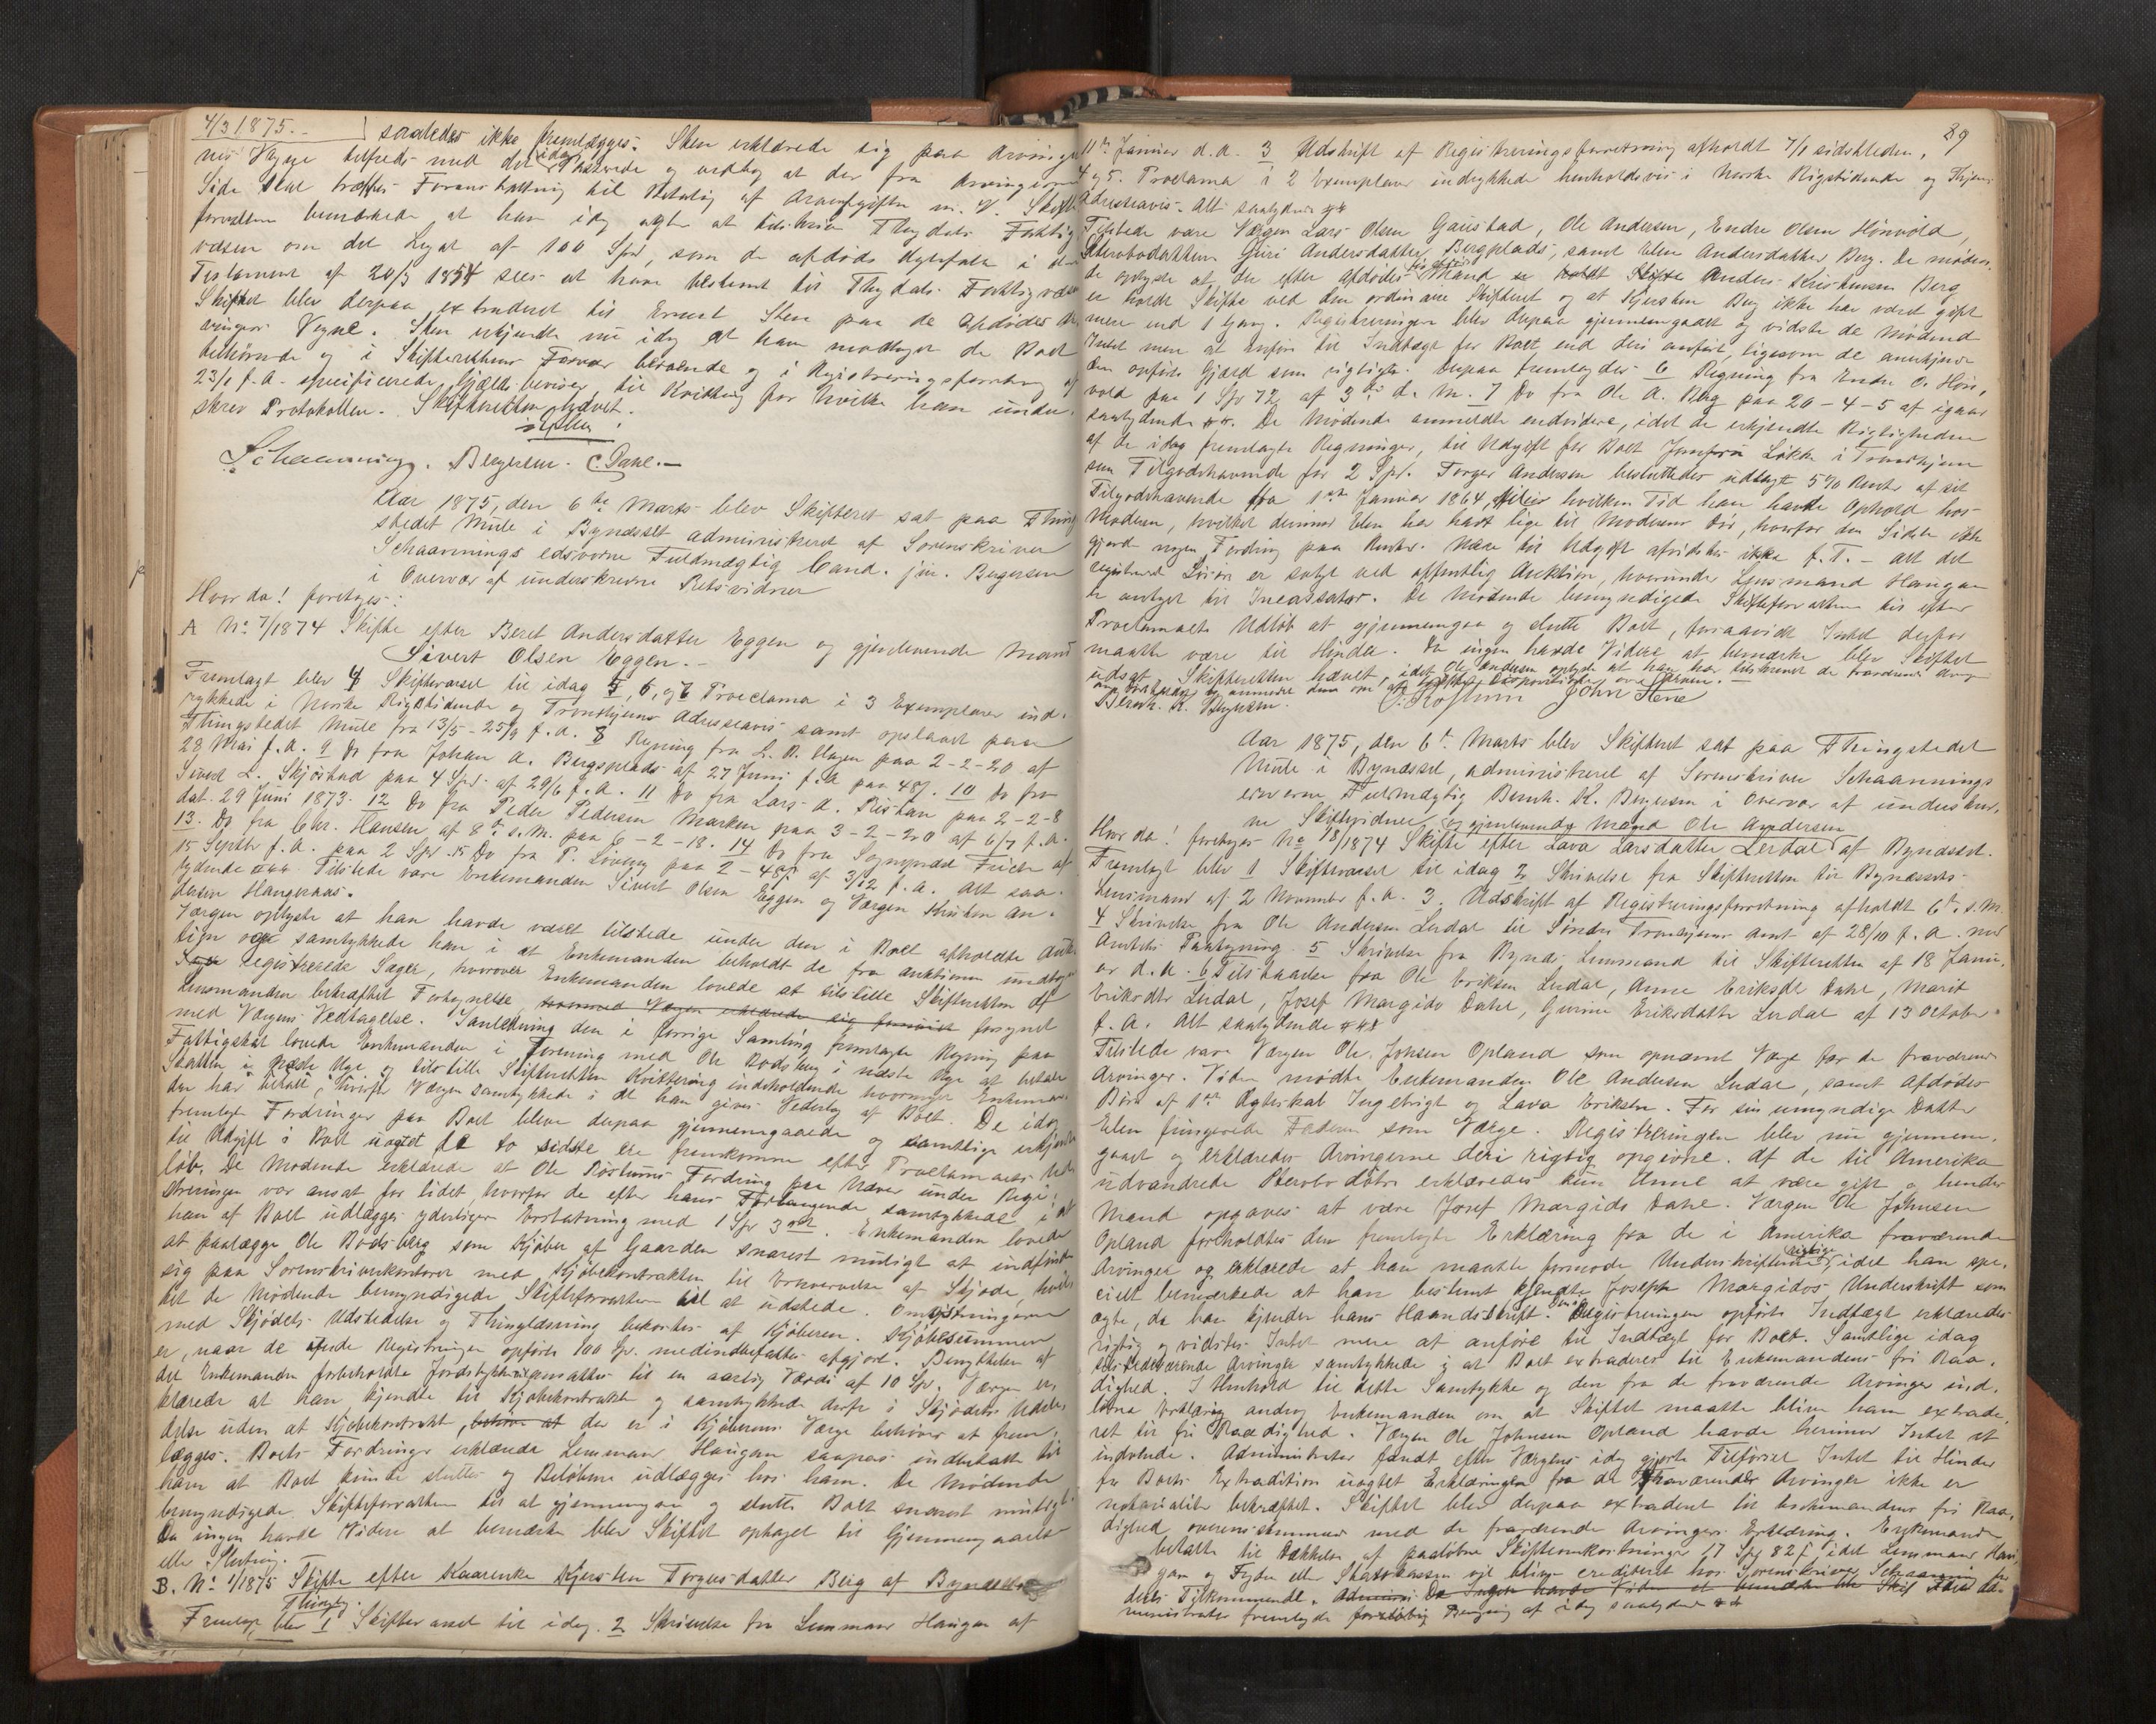 4/3 1875.
saaledes ikke fremlægges. Sten erklærede sig paa Arvinger
nes Vegne tilfreds med det idag passerede og vedtog at der fra Arvingernes
Side skal træffes Foranstaltning til Betaling af Arveafgiften m. V. Skifte
forvalteren bemærkede at han idag agter at tilskrive Thydals Fattig
væsen om det Legat af 100 Spd, som de afdøde Ægtefolk i deres
Testament af 20/3 1854 sees at have bestemt til Thydals Fattigvæsen
Skiftet blev derpaa extraderet til Ernst Sten paa de Afdødes Ar
vingers Vegne. Sten erkjendte nu idag at have modtaget de Boet
tilhørende og i Skifterettens Forvar beroende og i Registreringsforretning af
23/1 f. A. specificerede Gjældsbeviser, til Kvittering for hvilke han under-
skrev Protokollen. Skifteretten hævet.
Schaanning. Bergersen. C. Dahl.
Aar 1875, den 6te Marts blev Skifteret sat paa Thing
stedet Mule i Bynæsset administreret af Sorenskriver
Schaannings edsvorne Fuldmægtig Cand. jur. Bergersen
i Overvær af underskrevne Retsvidner
Hvor da! foretoges:
A No 7/1874 Skifte efter Beret Andersdatter Eggen og gjenlevende Mand
Sivert Olsen Eggen.
Fremlagt blev 4 Skiftevarsel til idag 5, 6, og 7 Proclama i 3 Exemplarer ind-
rykkede i Norske Rigstidende og Tronhjems Adresseavis samt opslaaet paa
Thingstedet Mule fra 13/5 - 25/9 f. A. 8 Regning fra L. A. Hagen paa 2-2-20 af
28 Mai f. A. 9 Do fra Johan A. Bergsplads af 27 Juni f. A paa 48 s. 10 Do fra
Sivert L. Skjøstad paa 4 Spd. af 29/6 f. A. 11 Do fra Lars A. Ristan paa 2-2-8
dat. 29 Juni 1873. 12 Do fra Peder Pedersen Marken paa 3-2-20 af 6/7 f. A.
13. Do fra Chr. Hansen af 8de s. M. paa 6-2-18. 14 Do fra Sogneprest Friis af
15 Septbr f. A. paa 2 Spd 15 Do fra P. Lovening paa 2-48 s af 3/12 f. A. Alt saa-
lydende. Tilstede vare Enkemanden Sivert Olsen Eggen og Værgen Kristen An-
dersen Hangeraas.
Værgen oplyste at han havde været tilstede under den i Boet afholdte Auk-
tion og samtykkede han i at Enkemanden beholdt de fra Auktionen undtagne
registrerede Sager, hvorover Enkemanden lovede at tilstille Skifteretten af
Lensmanden bekræftet Fortegnelse, hvormed Værgen erklærede sig fornøiet forsynet
med Værgens Vedtagelse. I Anledning den i forrige Samling fremlagte Regning paa
Fattigskat lovede Enkemanden i Forening med Ole Bodsberg i næste Uge at betale
Skatten i næste Uge og tilstille Skifteretten Kvittering indeholdende hvormeget Enkeman-
den har betalt, i hvilket Værgen samtykkede i at han gives Vederlag af Boet. De idag
fremlagte Fordringer paa Boet bleve derpaa gjennemgaaede og samtlige erkjendte
til Udgift i Boet uagtet de to sidste ere fremkomne efter Proclamaets Ud-
løb. De Mødende erklærede at Ole Røstums Fordring paa Næver under Regi-
streringen var ansat for lidet, hvorfor de efter hans Forlangende samtykkede i at
han af Boet udlægges yderligere Erstatning med 1 Spd 3 ort. Enkemanden lovede
at paalægge Ole Bodsberg som Kjøber af Gaarden snarest muligt at indfinde
sig paa Sorenskriverkontoret med Kjøbekontrakten til Erhvervelse af Skjøde, hvil-
ket de Mødende bemyndigede Skifteforvalteren til at udstede. Omkostningerne
med Skjødets Udstedelse og Thinglæsning bekostes af Kjøberen. Kjøbesummen
er, naar de under Registreringen opførte 100 Spd. medindbefattes afgjort. Benyttelsen af
det Enkemanden forbeholdte Jordstykke ansattes til en aarlig Værdi af 10 Spd. Værgen er-
klærede at han kjendte til Kjøbekontrakten og samtykkede derfor i Skjødets Udste-
delse uden at Kjøbekontrakt, behøver at der er i Kjøberens Værge behøver at frem-
lægges. Boets Fordringer erklærede Lensmand Haugan saapas indbetalte til
ham at Boet kunde sluttes og Beløbene udlægges hos ham. De Mødende
bemyndigede Skifteforvalteren til at gjennemgaa og slutte Boet snarest muligt.
Da ingen havde Videre at bemærke blev Skiftet optaget til Gjennemgaaelse
eller Slutning.
B. No 1/1875 Skifte efter Kaarenke Kjersten Torgersdatter Berg af Bynæsset
Thinglag.
Fremlagt blev 1 Skiftevarsel til idag. 2 Skrivelse fra Lensmand Haugan af
89
11te Januar d. A. 3 Udskrift af Registreringsforretning afholdt 7/1 sidstleden,
4 og 5. Proclama i 2 Exemplarer indrykkede henholdsvis i Norske Rigstidende og Thjems
Adresseavis. Alt saalydende
Tilstede vare Værgen Lars Olsen Gaustad, Ole Andersen, Endre Olsen Hønvold,
Sterbodatteren Guri Andersdatter Bergplads, samt Elen Andersdatter Berg. De møden-
de oplyste at der efter afdødes Mand er holdt Skifte Anders Kristensen Berg
er holdt Skifte ved den ordinære Skifteret og at Kjersten Berg ikke har været gift
mere end 1 Gang. Registreringen blev derpaa gjennemgaaet og vidste de Mødende
Intet mere at anføre til Indtægt for Boet end deri anført, ligesom de anerkjendte
den opførte Gjæld som rigtig. Derpaa fremlagdes 6 Regning fra Endre O. Høn-
vold paa 1 Spd 72 af 3de d. M. 7 Do fra Ole A. Berg paa 20-4-5 af igaar
saalydende. De Mødende anmeldte endvidere, idet de erkjendte Rigtigheden
af de idag fremlagte Regninger, til Udgift for Boet Jomfru Løkke i Trondhjem
som Tilgodehavende for 2 Spd. Torger Andersen besluttedes udlagt 5% Renter af sit
Tilgodehavende fra 1ste Januar 1864, siden hvilken Tid han havde Ophold hos
Moderen, hvilket derimod Elen har havt lige til Moderens Død, hvorfor den Sidste ikke
gjorde nogen Fordring paa Renter. Mere til Udgift afvidstes ikke f. T. - Alt det
registrerede Løsøre er solgt ved offentlig Auktion, hvorunder Lensmand Haugan
er antaget til Incassator. De Mødende bemyndigede Skifteforvalteren til efter
Proclamaets Udløb at gjennemgaa og slutte Boet, forsaavidt Intet derfor
maatte være til Hinder. Da ingen havde Videre at bemærke blev Skiftet
udsat. Skifteretten hævet, idet Ole Andersen oplyste at han har tilskrevet de fraværende Arv-
Bernh. K. Bergersen. O. Rostum John Stene
Aar 1875, den 6te Marts blev Skifteret sat paa Thingstedet
Mule i Bynæsset, administreret af Sorenskriver Schaannings
edsvorne Fuldmægtig Bernh. K. Bergersen i Overvær af underskrev-
ne Skiftevidner og gjenlevende Mand Ole Andersen
Hvor da! foretoges No 18/1874 Skifte efter Lava Larsdatter Lerdal af Bynæsset.
Fremlagt blev 1 Skiftevarsel til idag 2 Skrivelse fra Skifteretten til Bynæssets
Lensmand af 2 November f. A. 3. Udskrift af Registreringsforretning afholdt 6te s. M.
4 Skrivelse fra Ole Andersen Lerdal til Søndre Trondhjems Amt af 28/10 f. A. med
Amtets Paategning. 5 Skrivelse fra Bynæs Lensmand til Skifteretten af 18 Janu-
ar d. A. 6 Tilstaaelse fra Ole Eriksen Lerdal, Anne Eriksdt Dahl, Marit
Eriksdtr Lerdal, Josef Margido Dahl, Gurine Eriksdatter Lerdal af 13 October
f. A. Alt saalydende
Tilstede vare Værgen Ole Johsen Opland som opnævnt Værge for de fraværende
Arvinger. Videre mødte Enkemanden Ole Andersen Lerdal, samt Afdødes
Børn af 1ste Ægteskab Ingebrigt og Lava Eriksen. For sin umyndige Datter
Elen fungerede Faderen som Værge. Registreringen blev nu gjennem-
gaaet og erklæredes Arvingerne deri rigtig opgivne. Af de til Amerika
udvandrede Sterbodøtre erklæredes kun Anne at være gift og hendes
Mand opgaves at være Josef Margido Dahl. Værgen Ole Johnsen
Opland foreholdtes den fremlagte Erklæring fra de i Amerika fraværende
Arvinger og erklærede at han maatte formode Underskrifterne rigtige, idet han spe-
cielt bemærkede at han bestemt kjendte Joseph Margidos Underskrift som
ægte, da han kjender hans Haandskrift. Den i Registreringen opførte Indtægt erklæredes
rigtig og vidstes Intet mere at anføre til Indtægt for Boet. Samtlige idag
tilstedeværende Arvinger samtykkede i at Boet extraderes til Enkemandens fri Raa-
dighed. I Henhold til dette Samtykke og den fra de fraværende Arvinger ind-
løbne Erklæring androg Enkemanden om at Skiftet maatte blive ham extrade-
ret til fri Raadighed. Værgen Ole Johnsen Opland havde herimod Intet at
indvende. Administrator fandt efter Værgens idag gjorte Tilførsel Intet til Hinder
for Boets Extradition uagtet Erklæringen fra de fraværende Arvinger ikke er
notarialiter bekræftet. Skiftet blev derpaa extraderet til Enkemandens fri Raa-
dighed overensstemmende med de fraværende Arvingers Erklæring. Enkemanden
betalte til Dækkelse af paaløbne Skifteomkostninger 17 Spd 82 s idet Lensmand Hau-
gan og Fogden eller Skatekassen vil blive crediteret hos Sorenskriver Schaanning for
deres Tilkommende. Da Ingen havde Videre at bemærke blev Skif Ad-
ministrator fremlagde foreløbig Beregning af idag saalydende